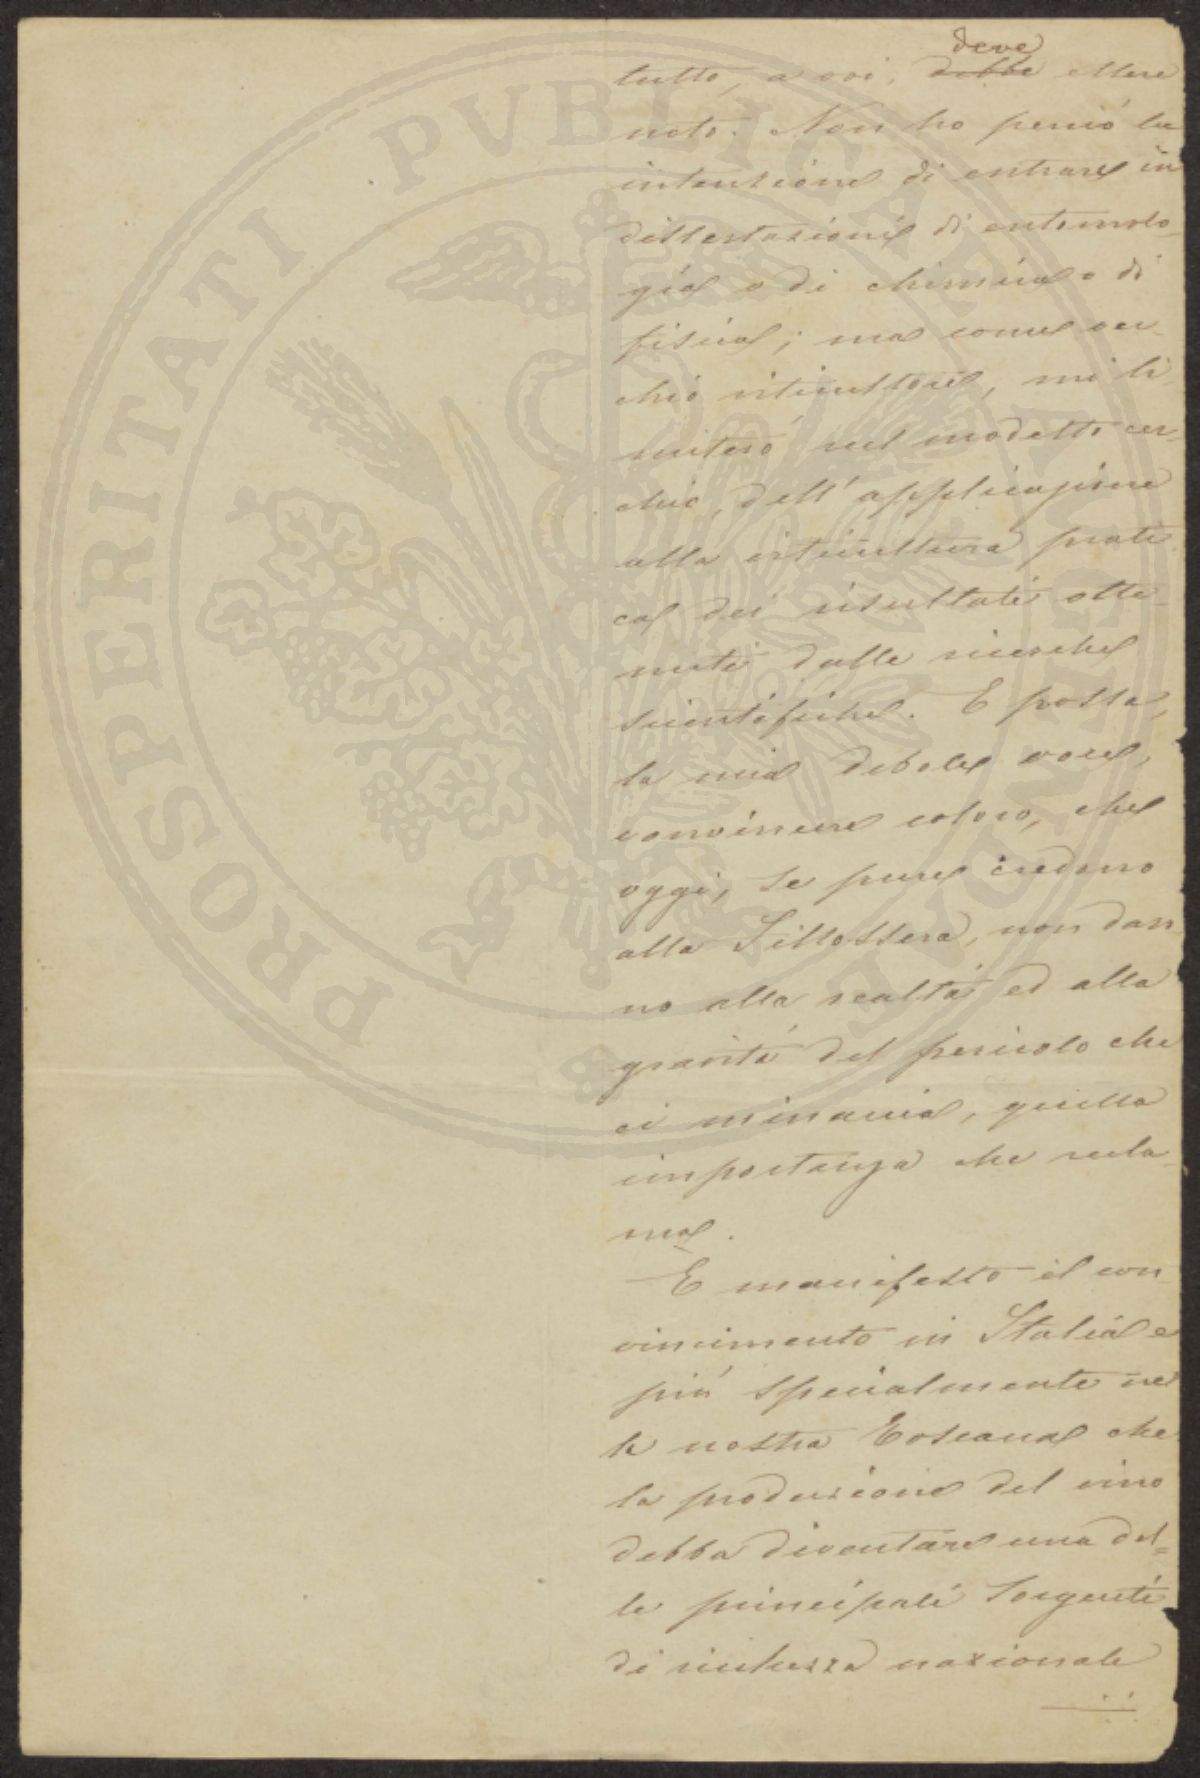 deve
tutto, a voi, debbe essere
noto. Non ho perció la
intenzione di entrare in
dissertazioni di entomolo-
gia o di chimica o di
fisica; ma come vec-
chio viticultore, mi li-
miteró nel modesto cer-
chio, dell'applicazione
alla viticultura prati
ca dei risultati otte-
nuti dalle ricerche
scientifiche. E possa,
la mia debole voce,
convincere coloro, che
oggi, se pure credono
alla Fillossera, non dan
no alla realtá ed alla
gravitá del pericolo che
ci minaccia, quella
importanza che recla-
ma.
E manifesto il con
vincimento in Italia e
piú specialmente nel
la nostra Toscana che
la produzione del vino
debba diventare una del=
le principali sorgenti
di ricchezza nazionale
PROSPERITATI PVBLICAE AVGENDAE